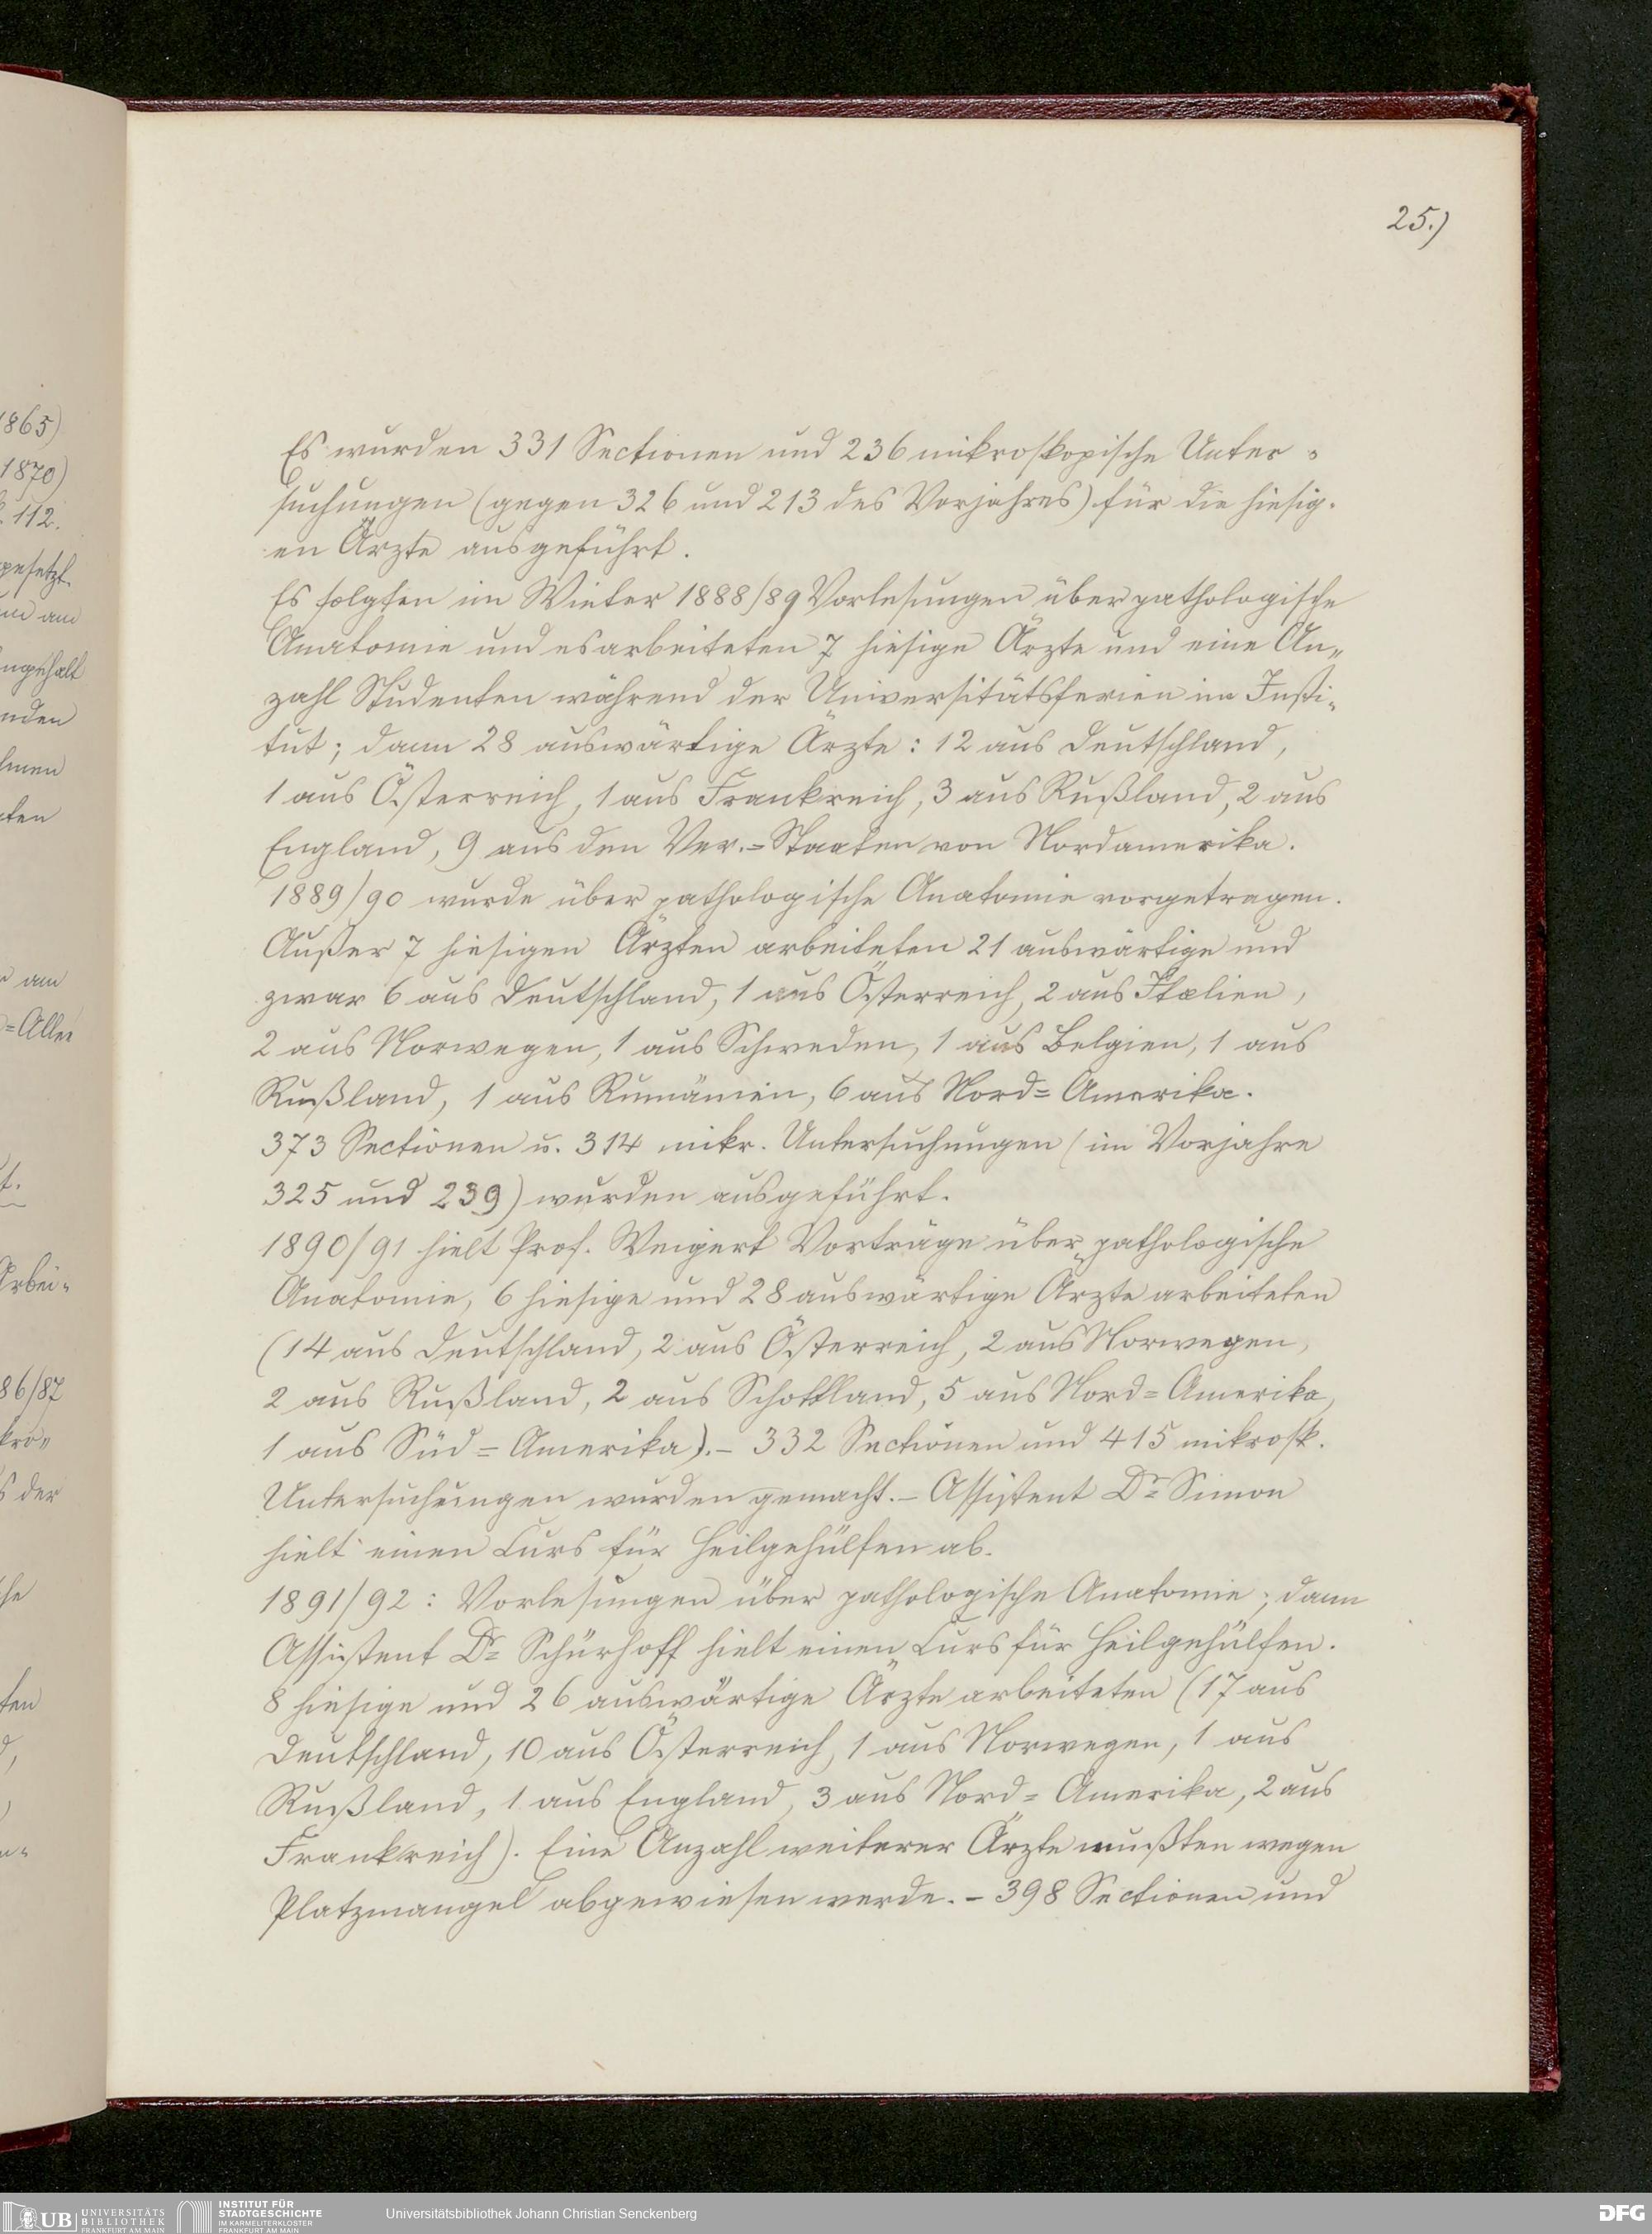 25.)
Es wurden 331 Sectionen und 236 mikroskopische Unter=
suchungen (gegen 326 und 213 des Vorjahres) für die hiesig.
en Ärzte ausgeführt.
Es folgten im Winter 1888/89 Vorlesungen über pathologische
Anatomie und es arbeiteten 7 hiesige Ärzte und eine An„
zahl Studenten während der Universitätsferien im Insti„
tut; dann 28 auswärtige Ärzte: 12 aus Deutschland,
1 aus Österreich, 1 aus Frankreich, 3 aus Rußland, 2 aus
England, 9 aus den Ver.=Staaten von Nordamerika.
1889/90 wurde über pathologische Anatomie vorgetragen.
Außer 7 hiesigen Ärzten arbeiteten 21 auswärtige und
zwar 6 aus Deutschland, 1 aus Österreich, 2 aus Italien,
2 aus Norwegen, 1 aus Schweden, 1 aus Belgien, 1 aus
Rußland, 1 aus Rumänien, 6 aus Nord=Amerika.
373 Sectionen u. 314 mikr. Untersuchungen (im Vorjahre
325 und 239) wurden ausgeführt.
1890/91 hielt Prof. Weigert Vorträge über pathologische
Anatomie, 6 hiesige und 28 auswärtige Ärzte arbeiteten
(14 aus Deutschland, 2 aus Österreich, 2 aus Norwegen,
2 aus Rußland, 2 aus Schottland, 5 aus Nord=Amerika,
1 aus Süd=Amerika).– 332 Sectionen und 415 mikrosk.
Untersuchungen wurden gemacht.– Assistent Dr Simon
hielt einen Curs für Heilgehülfen ab.
1891/92: Vorlesungen über pathologische Anatomie; dann
Assistent Dr Schürhoff hielt einen Curs für Heilgehülfen.
8 hiesige und 26 auswärtige Ärzte arbeiteten (17 aus
Deutschland, 10 aus Österreich, 1 aus Norwegen, 1 aus
Rußland, 1 aus England, 3 aus Nord=Amerika, 2 aus
Frankreich). Eine Anzahl weiterer Ärzte mußten wegen
Platzmangel abgewiesen werde.– 398 Sectionen und
1865)
1870)
112.
gesetzt.
am
nden
ten
am
=Aller
Arbei=
86/87
der
UB UNIVERSITÄTS
BIBLIOTHEK
FRANKFURT AM MAIN
INSTITUT FÜR
STADTGESCHICHTE
IM KARMELITERKLOSTER
FRANKFURT AM MAIN
Universitätsbibliothek Johann Christian Senckenberg
DFG